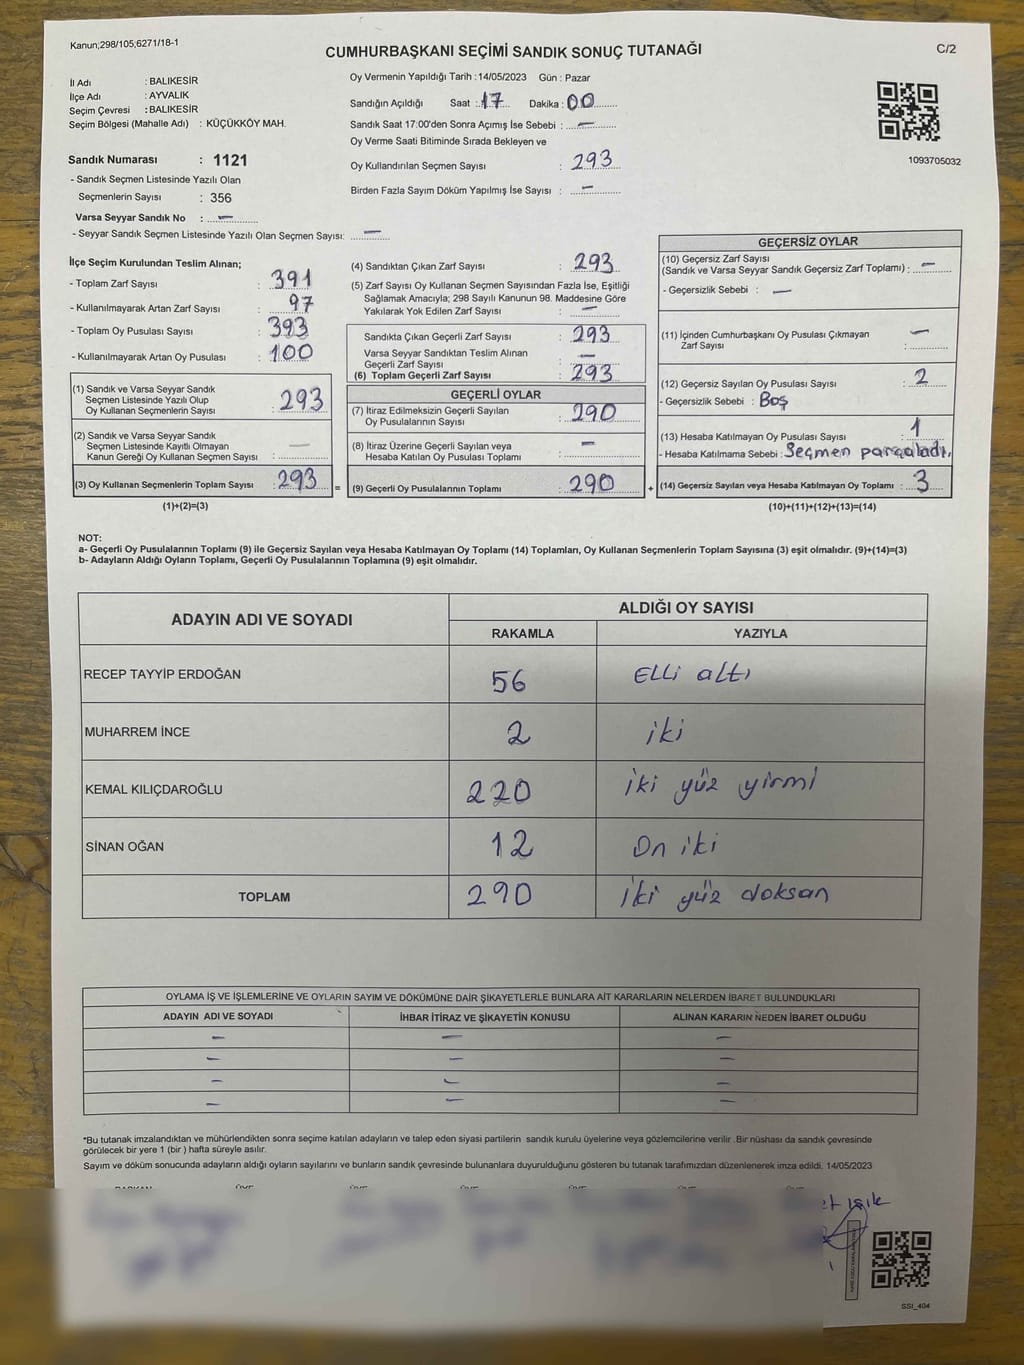 Kanun;298/105;6271/18-1
CUMHURBAŞKANI SEÇİMİ SANDIK SONUÇ TUTANAĞI
C/2
İl Adı : BALIKESİR
İlçe Adı : AYVALIK
Seçim Çevresi : BALIKESİR
Seçim Bölgesi (Mahalle Adı) : KÜÇÜKKÖY MAH.
Sandık Numarası : 1121
- Sandık Seçmen Listesinde Yazılı Olan
Seçmenlerin Sayısı : 356
Varsa Seyyar Sandık No : —
- Seyyar Sandık Seçmen Listesinde Yazılı Olan Seçmen Sayısı: —
Oy Vermenin Yapıldığı Tarih : 14/05/2023 Gün : Pazar
Sandığın Açıldığı Saat : 17 Dakika : 00
Sandık Saat 17:00'den Sonra Açımış İse Sebebi : —
Oy Verme Saati Bitiminde Sırada Bekleyen ve
Oy Kullandırılan Seçmen Sayısı : 293
Birden Fazla Sayım Döküm Yapılmış İse Sayısı : —
1093705032
İlçe Seçim Kurulundan Teslim Alınan;
- Toplam Zarf Sayısı : 391
- Kullanılmayarak Artan Zarf Sayısı : 97
- Toplam Oy Pusulası Sayısı : 393
- Kullanılmayarak Artan Oy Pusulası : 100
(1) Sandık ve Varsa Seyyar Sandık
Seçmen Listesinde Yazılı Olup
Oy Kullanan Seçmenlerin Sayısı : 293
(2) Sandık ve Varsa Seyyar Sandık
Seçmen Listesinde Kayıtlı Olmayan
Kanun Gereği Oy Kullanan Seçmen Sayısı : —
(3) Oy Kullanan Seçmenlerin Toplam Sayısı : 293 =
(1)+(2)=(3)
(4) Sandıktan Çıkan Zarf Sayısı : 293
(5) Zarf Sayısı Oy Kullanan Seçmen Sayısından Fazla İse, Eşitliği
Sağlamak Amacıyla; 298 Sayılı Kanunun 98. Maddesine Göre
Yakılarak Yok Edilen Zarf Sayısı : —
Sandıkta Çıkan Geçerli Zarf Sayısı : 293
Varsa Seyyar Sandıktan Teslim Alınan
Geçerli Zarf Sayısı : —
(6) Toplam Geçerli Zarf Sayısı : 293
GEÇERLİ OYLAR
(7) İtiraz Edilmeksizin Geçerli Sayılan
Oy Pusulalarının Sayısı : 290
(8) İtiraz Üzerine Geçerli Sayılan veya
Hesaba Katılan Oy Pusulası Toplamı : —
(9) Geçerli Oy Pusulalarının Toplamı : 290 +
GEÇERSİZ OYLAR
(10) Geçersiz Zarf Sayısı
(Sandık ve Varsa Seyyar Sandık Geçersiz Zarf Toplamı) : —
- Geçersizlik Sebebi : —
(11) İçinden Cumhurbaşkanı Oy Pusulası Çıkmayan
Zarf Sayısı : —
(12) Geçersiz Sayılan Oy Pusulası Sayısı : 2
- Geçersizlik Sebebi : Boş
(13) Hesaba Katılmayan Oy Pusulası Sayısı : 1
- Hesaba Katılmama Sebebi : Seçmen parçaladı.
(14) Geçersiz Sayılan veya Hesaba Katılmayan Oy Toplamı : 3
(10)+(11)+(12)+(13)=(14)
NOT:
a- Geçerli Oy Pusulalarının Toplamı (9) ile Geçersiz Sayılan veya Hesaba Katılmayan Oy Toplamı (14) Toplamları, Oy Kullanan Seçmenlerin Toplam Sayısına (3) eşit olmalıdır. (9)+(14)=(3)
b- Adayların Aldığı Oyların Toplamı, Geçerli Oy Pusulalarının Toplamına (9) eşit olmalıdır.
ADAYIN ADI VE SOYADI
ALDIĞI OY SAYISI
RAKAMLA YAZIYLA
RECEP TAYYİP ERDOĞAN 56 Elli altı
MUHARREM İNCE 2 iki
KEMAL KILIÇDAROĞLU 220 iki yüz yirmi
SİNAN OĞAN 12 On iki
TOPLAM 290 iki yüz doksan
OYLAMA İŞ VE İŞLEMLERİNE VE OYLARIN SAYIM VE DÖKÜMÜNE DAİR ŞİKAYETLERLE BUNLARA AİT KARARLARIN NELERDEN İBARET BULUNDUKLARI
ADAYIN ADI VE SOYADI İHBAR İTİRAZ VE ŞİKAYETİN KONUSU ALINAN KARARIN NEDEN İBARET OLDUĞU
— — —
— — —
— — —
— — —
*Bu tutanak imzalandıktan ve mühürlendikten sonra seçime katılan adayların ve talep eden siyasi partilerin sandık kurulu üyelerine veya gözlemcilerine verilir .Bir nüshası da sandık çevresinde
görülecek bir yere 1 (bir ) hafta süreyle asılır.
Sayım ve döküm sonucunda adayların aldığı oyların sayılarını ve bunların sandık çevresinde bulunanlara duyurulduğunu gösteren bu tutanak tarafımızdan düzenlenerek imza edildi. 14/05/2023
SSI_404